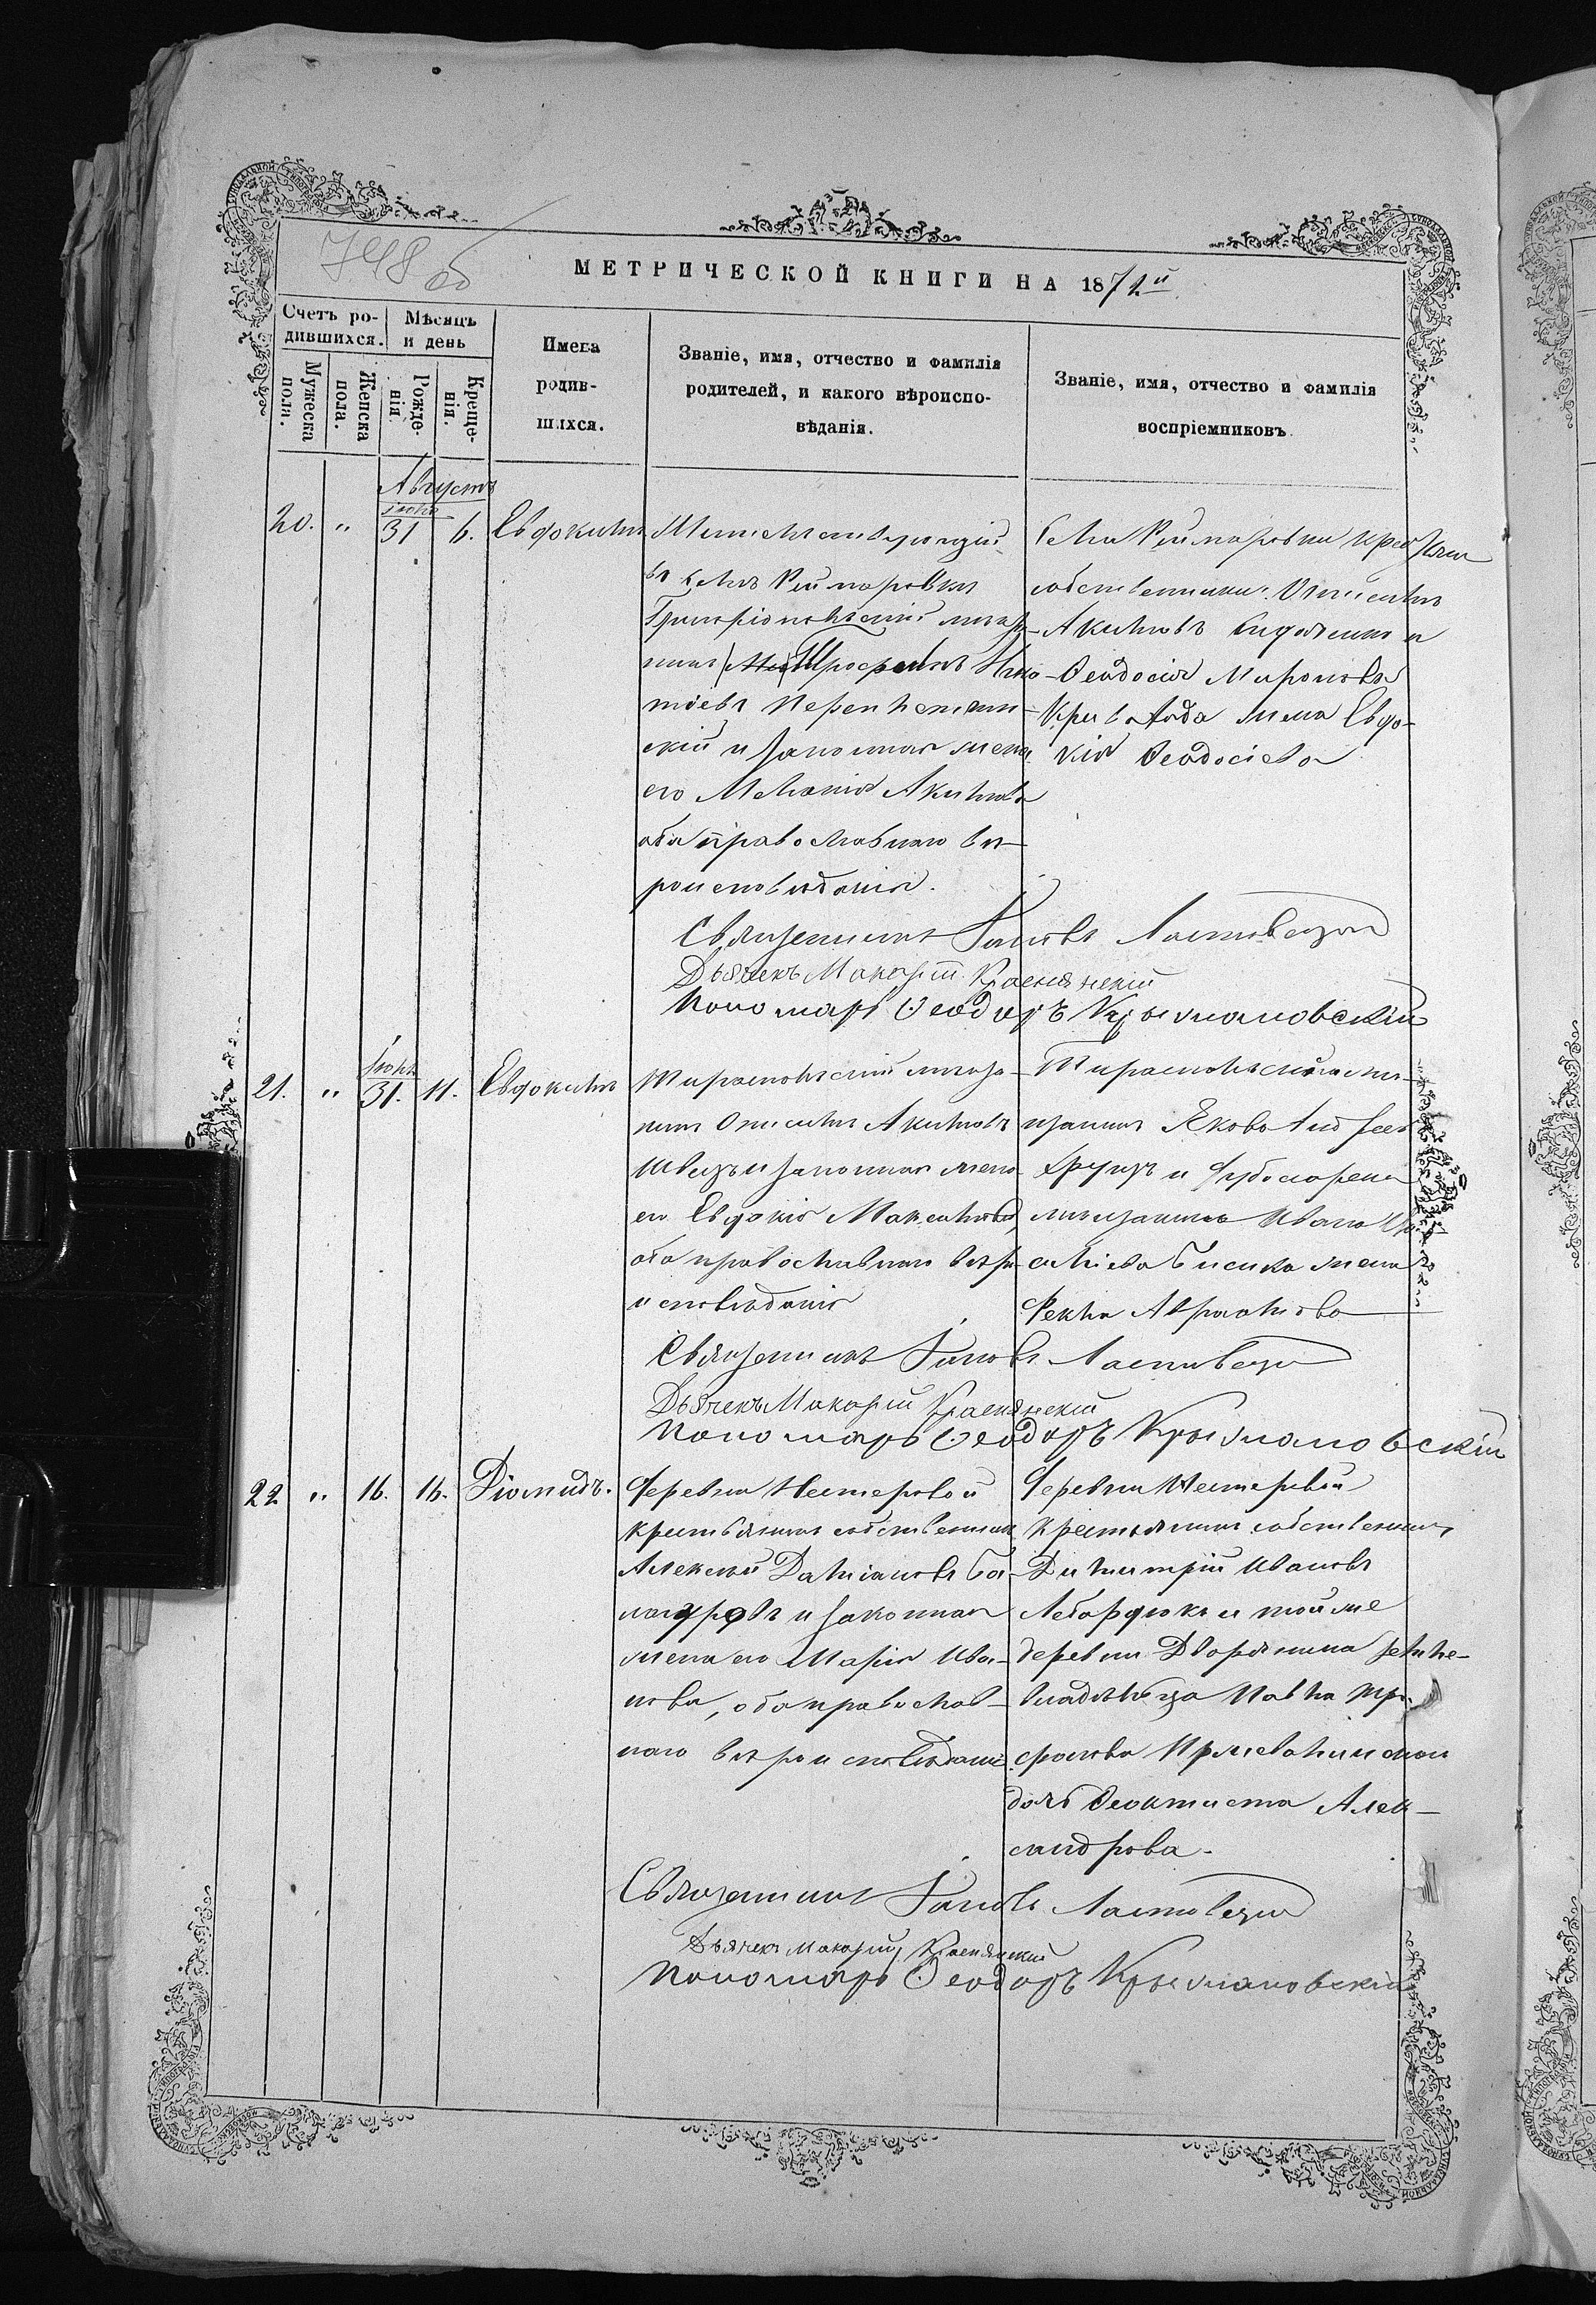 748 об
МЕТРИЧЕСКОЙ КНИГИ НА 1872й
Счетъ ро-
дившихся.
Мужеска
пола.
Женска
пола.
Мѣсяцъ
и день
Рожде-
нія.
Креще-
нія.
Имена
родив-
шихся.
Званіе, имя, отчество и фамилія
родителей, и какого вѣроиспо-
вѣданія.
Званіе, имя, отчество и фамилія
воспріемниковъ.
Августъ
20. " Іюля 31 6. Евдокимъ
Жительствующій
въ селѣ Реймаровки
Григоріопольскій мѣща-
нинъ Трофимъ Игна-
тіевъ
и законная жена
его Меланія Акимова
оба православнаго вѣ-
роисповѣданія.
Села Реймаровки
собственники: Онисимъ
Акимовъ и
Феодосія Миронова
жена Евдо-
кія Феодосіева
Священникъ Іаковъ Ластовецкій
Дьячекъ Макарій Краснянскій
Пономарь Феодоръ Крыжановскій
21. " Іюля 31. 11. Евдокимъ
Тираспольскій мѣща-
нинъ Онисимъ Акимовъ
Швецъ и законная жена
его Евдокія Максимова,
оба православнаго вѣро-
исповѣданія
Тираспольскій мѣ-
щанинъ Яковъ Андреевъ
и
мѣщанина Ивана
жена
Фекла Авраамова
Священникъ Іаковъ Ластовецкій
Дьячекъ Макарій Краснянскій
Пономарь Феодоръ Крыжановскій
22 " 16. 16. Діомидъ.
Деревни Нестеровой
крестьянинъ собственникъ
Алексѣй Даміановъ Ба-
и законная
жена его Марія Ива-
нова, оба православ-
наго вѣроисповѣданія
Деревни Нестеровой
крестьянинъ собственникъ
Димитрій Ивановъ
и той же
деревни Дворянина земле-
владѣльца Павла
дочь Феоктиста Алек-
сандрова.
Священникъ Іаковъ Ластовецкій
Дьячекъ Макарій Краснянскій
Пономарь Феодоръ Крыжановскій